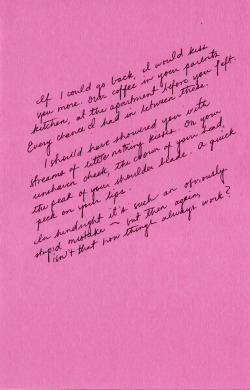 If I could go back, I would kiss
you more. Over coffee in your parents
kitchen, at the apartment before you left.
Every chance I had in between these.
I should have showered you with
streams of little nothing kisses. On your
unshaven cheek, the crown of your head,
the peak of your shoulder blade. A quick
peck on your lips.
In hindsight it's such an obviously
stupid mistake — but then again,
isn't that how things always work?